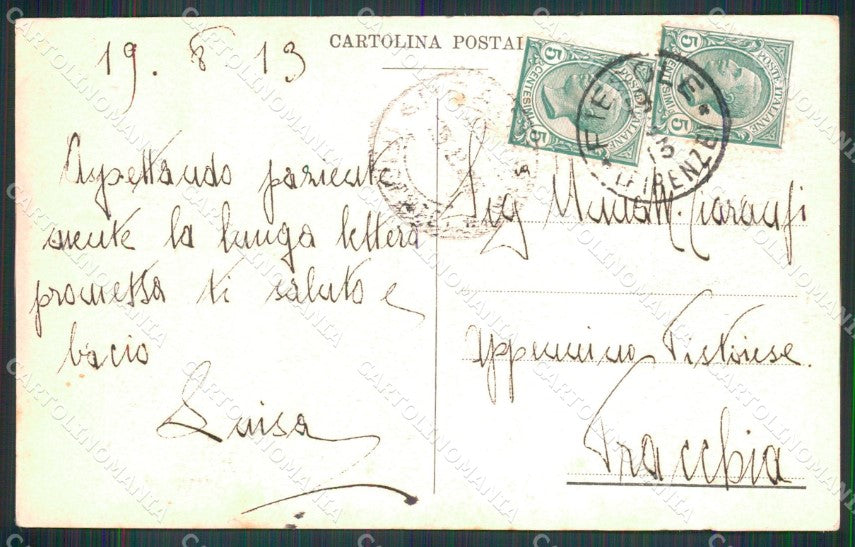 CARTOLINA POSTAL
19. 8 13
Aspettando paziente
mente la lunga lettera
promessa ti saluto e
bacio
Luisa
Sig
Appennino Pistoiese.
Pracchia
5 CENTESIMI 5
POSTE ITALIANE
5 CENTESIMI 5
POSTE ITALIANE
FIESOLE
13
(FIRENZE)
CARTOLINOMANIA